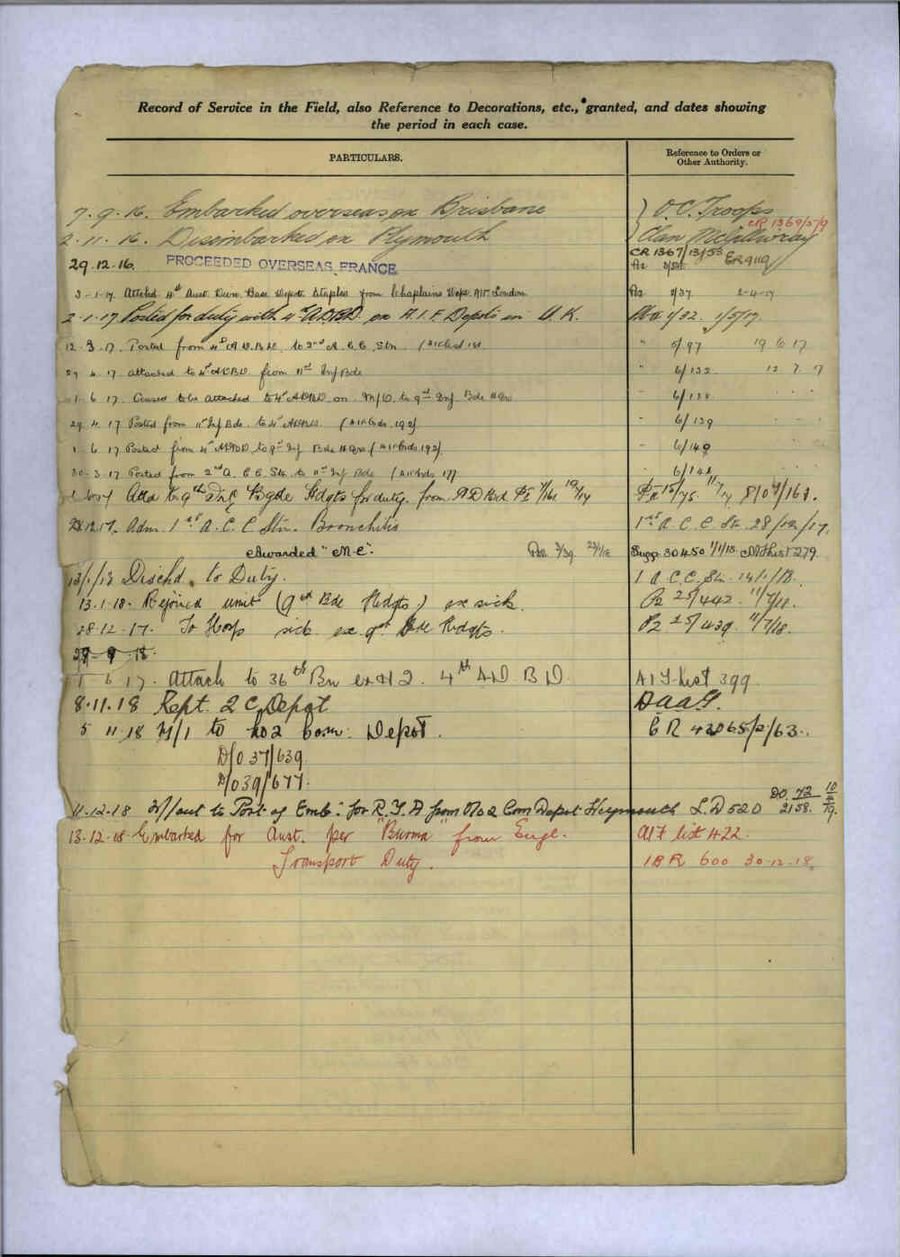 Record of Service in the Field, also Reference to Decorations, etc., granted, and dates showing
the period in each case.
PARTICULARS.
Reference to Orders or
Other Authority.
7.9.16. Embarked overseas ex Brisbane } O.C. Troops
CR 1369/5/9
2.11.16. Disembarked ex Plymouth } Clan McGillivray
29.12.16. PROCEEDED OVERSEAS FRANCE CR 1367/13/53
3-1-17 Attchd 4th Aust. Divn. Base Depot Etaples from Chaplains Dept. London 2-4-17
2-1-17 Posted for duty with 4th A.D.B.D. ex A.I.F. Depots in U.K. 1/32. 1/5/17.
12.3.17. Posted from 4th A.D.B.D. to 2nd A.C.C. Stn. " 5/97 19 6 17
4.17 attached to 4th A.D.B.D. from 11th Inf Bde " 6/132 12 7 17
1.6.17. Ceased to be attached to 4th ADBD on M/O. to 9th Inf Bde H Qrs " 6/138
29.4.17 Posted from 11 Inf Bde to 4th ADBD. " 6/139
1.6.17 Posted from 4th ADBD to 9th Inf Bde H Qrs " 6/140
30-3-17 Posted from 2nd A.C.C. Stn. to 11th Inf Bde " 6/141
9th Inf Bgde Hdqts for duty from
28.12.17. Adm. 1st A.C.C. Stn. Bronchitis 1st A.C.C. Stn 28/12/17.
Awarded "M.C". Supp. 30450 1/1/18. List 279
13/1/18 Dischd. to Duty. 1 A.C.C. Stn. 14/1/18.
13.1.18. Rejoined unit (9th Bde Hdqts) ex sick. P2 25/442. 11/7/18.
28-12-17. To Hosp sick ex 9th Bde Hdqts. P2 25/439. 11/7/18.
1 6 17. Attach to 36th Bn 4th A D B D. A I F List 399
8.11.18 Rept. 2 C. Depot DAAG.
5 11 18 M/I to No2 Com: Depot. C R 43065/2/63.
D/037/639
D/039/677.
11-12-18 M/out to Port of Emb: for R.T.A from No 2 Com Depot Weymouth L.D 520 DO 72
2158.
13-12-18 Embarked for Aust. per "Burma" from Engl. AIF list 422.
Transport Duty. IBR 600 30-12-18.